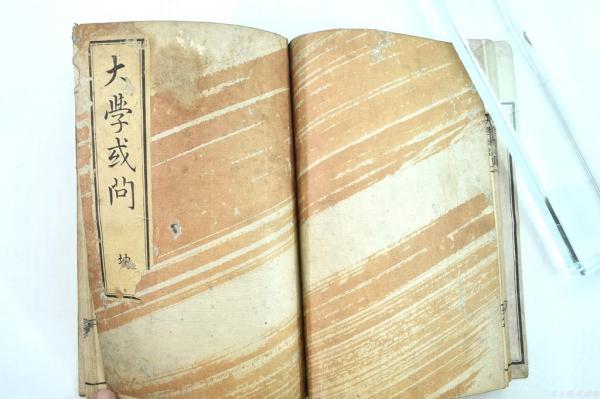 大學或問
坤